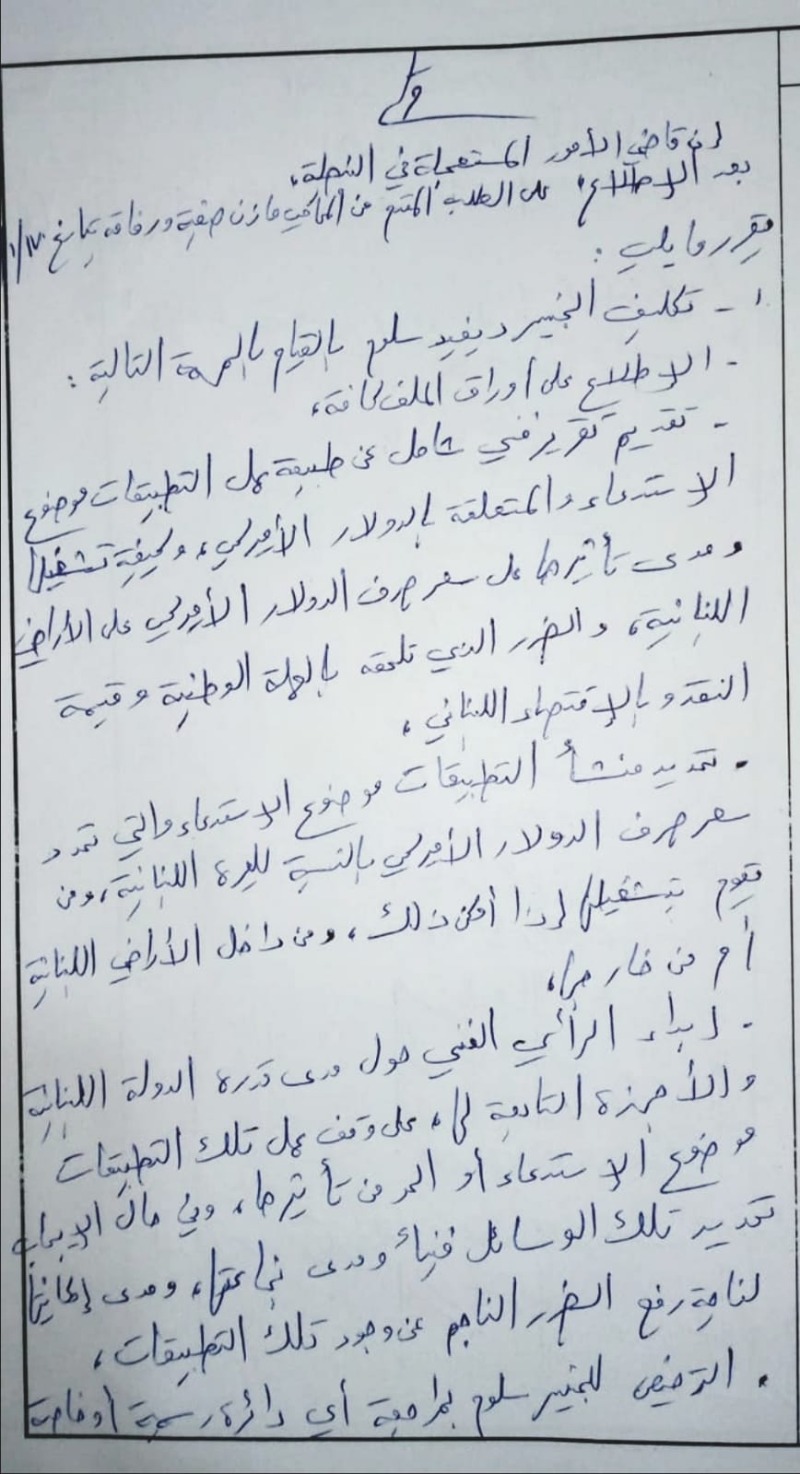 قرار
إن قاضي الأمور المستعجلة في النبطية،
بعد الإطلاع على الطلب المقدم من المحامي مازن صفية ورفاقه بتاريخ
يقرر ما يلي :
١- تكليف الخبير ديفيد سلوم بالقيام بالمهمة التالية :
- الإطلاع على أوراق الملف كافة،
- تقديم تقرير فني شامل عن طبيعة عمل التطبيقات موضوع
الاستدعاء والمتعلقة بالدولار الأميركي، وكيفية تشغيلها
ومدى تأثيرها على سعر صرف الدولار الأميركي على الأراضي
اللبنانية، والضرر الذي تلحقه بالعملة الوطنية وقيمة
النقد وبالإقتصاد اللبناني،
- تحديد منشأ التطبيقات موضوع الاستدعاء والتي تحدد
سعر صرف الدولار الأميركي بالنسبة لليرة اللبنانية، ومن
يقوم بتشغيلها إذا أمكن ذلك، ومن داخل الأراضي اللبنانية
أم من خارجها،
- إبداء الرأي الفني حول مدى قدرة الدولة اللبنانية
والأجهزة التابعة لها، على وقف عمل تلك التطبيقات
موضوع الاستدعاء أو الحد من تأثيرها، وفي حال الإيجاب
تحديد تلك الوسائل فنياً ومدى نجاعتها، ومدى إمكانيتها
لناحية رفع الضرر الناجم عن وجود تلك التطبيقات،
- الترخيص للخبير سلوم بمراجعة أي دائرة رسمية أو خاصة